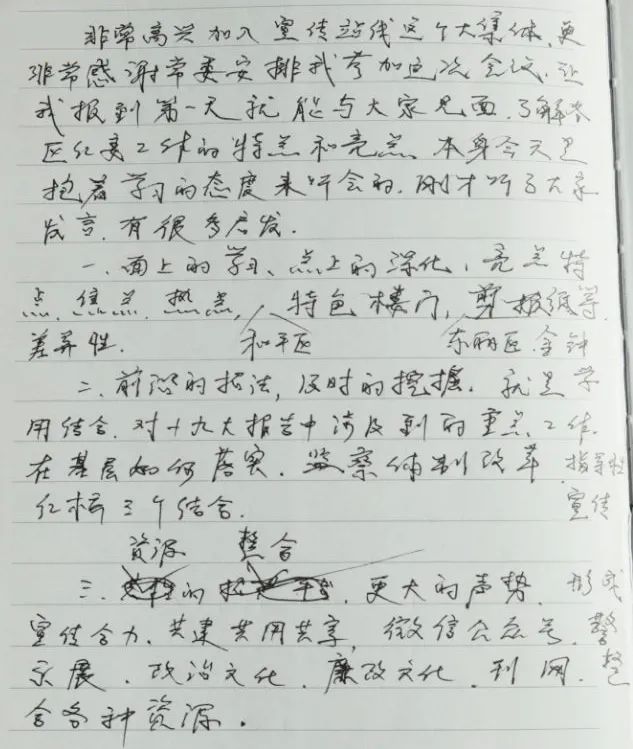 非常高兴加入宣传战线这个大集体,更
非常感谢常委安排我参加这次会议,让
我报到第一天就能与大家见面,了解各
区纪委工作的特点和亮点。本身今天是
抱着学习的态度来听会的,刚才听了大家
发言,有很多启发。
一、面上的学习、点上的深化,亮点特
点、焦点、热点,特色楼门,剪报纸等
差异性. 和平区 东丽区.金钟
二、前沿的招法,及时的挖掘.就是学
用结合.对十九大报告中涉及到的重点工作
在基层如何落实.监察体制改革 指导性
红桥三个结合. 宣传
资源 整合
三、的 更大的声势.形成
宣传合力.共建共用共享,微信公众号.警
示展.政治文化.廉政文化.到网.整
合各种资源.